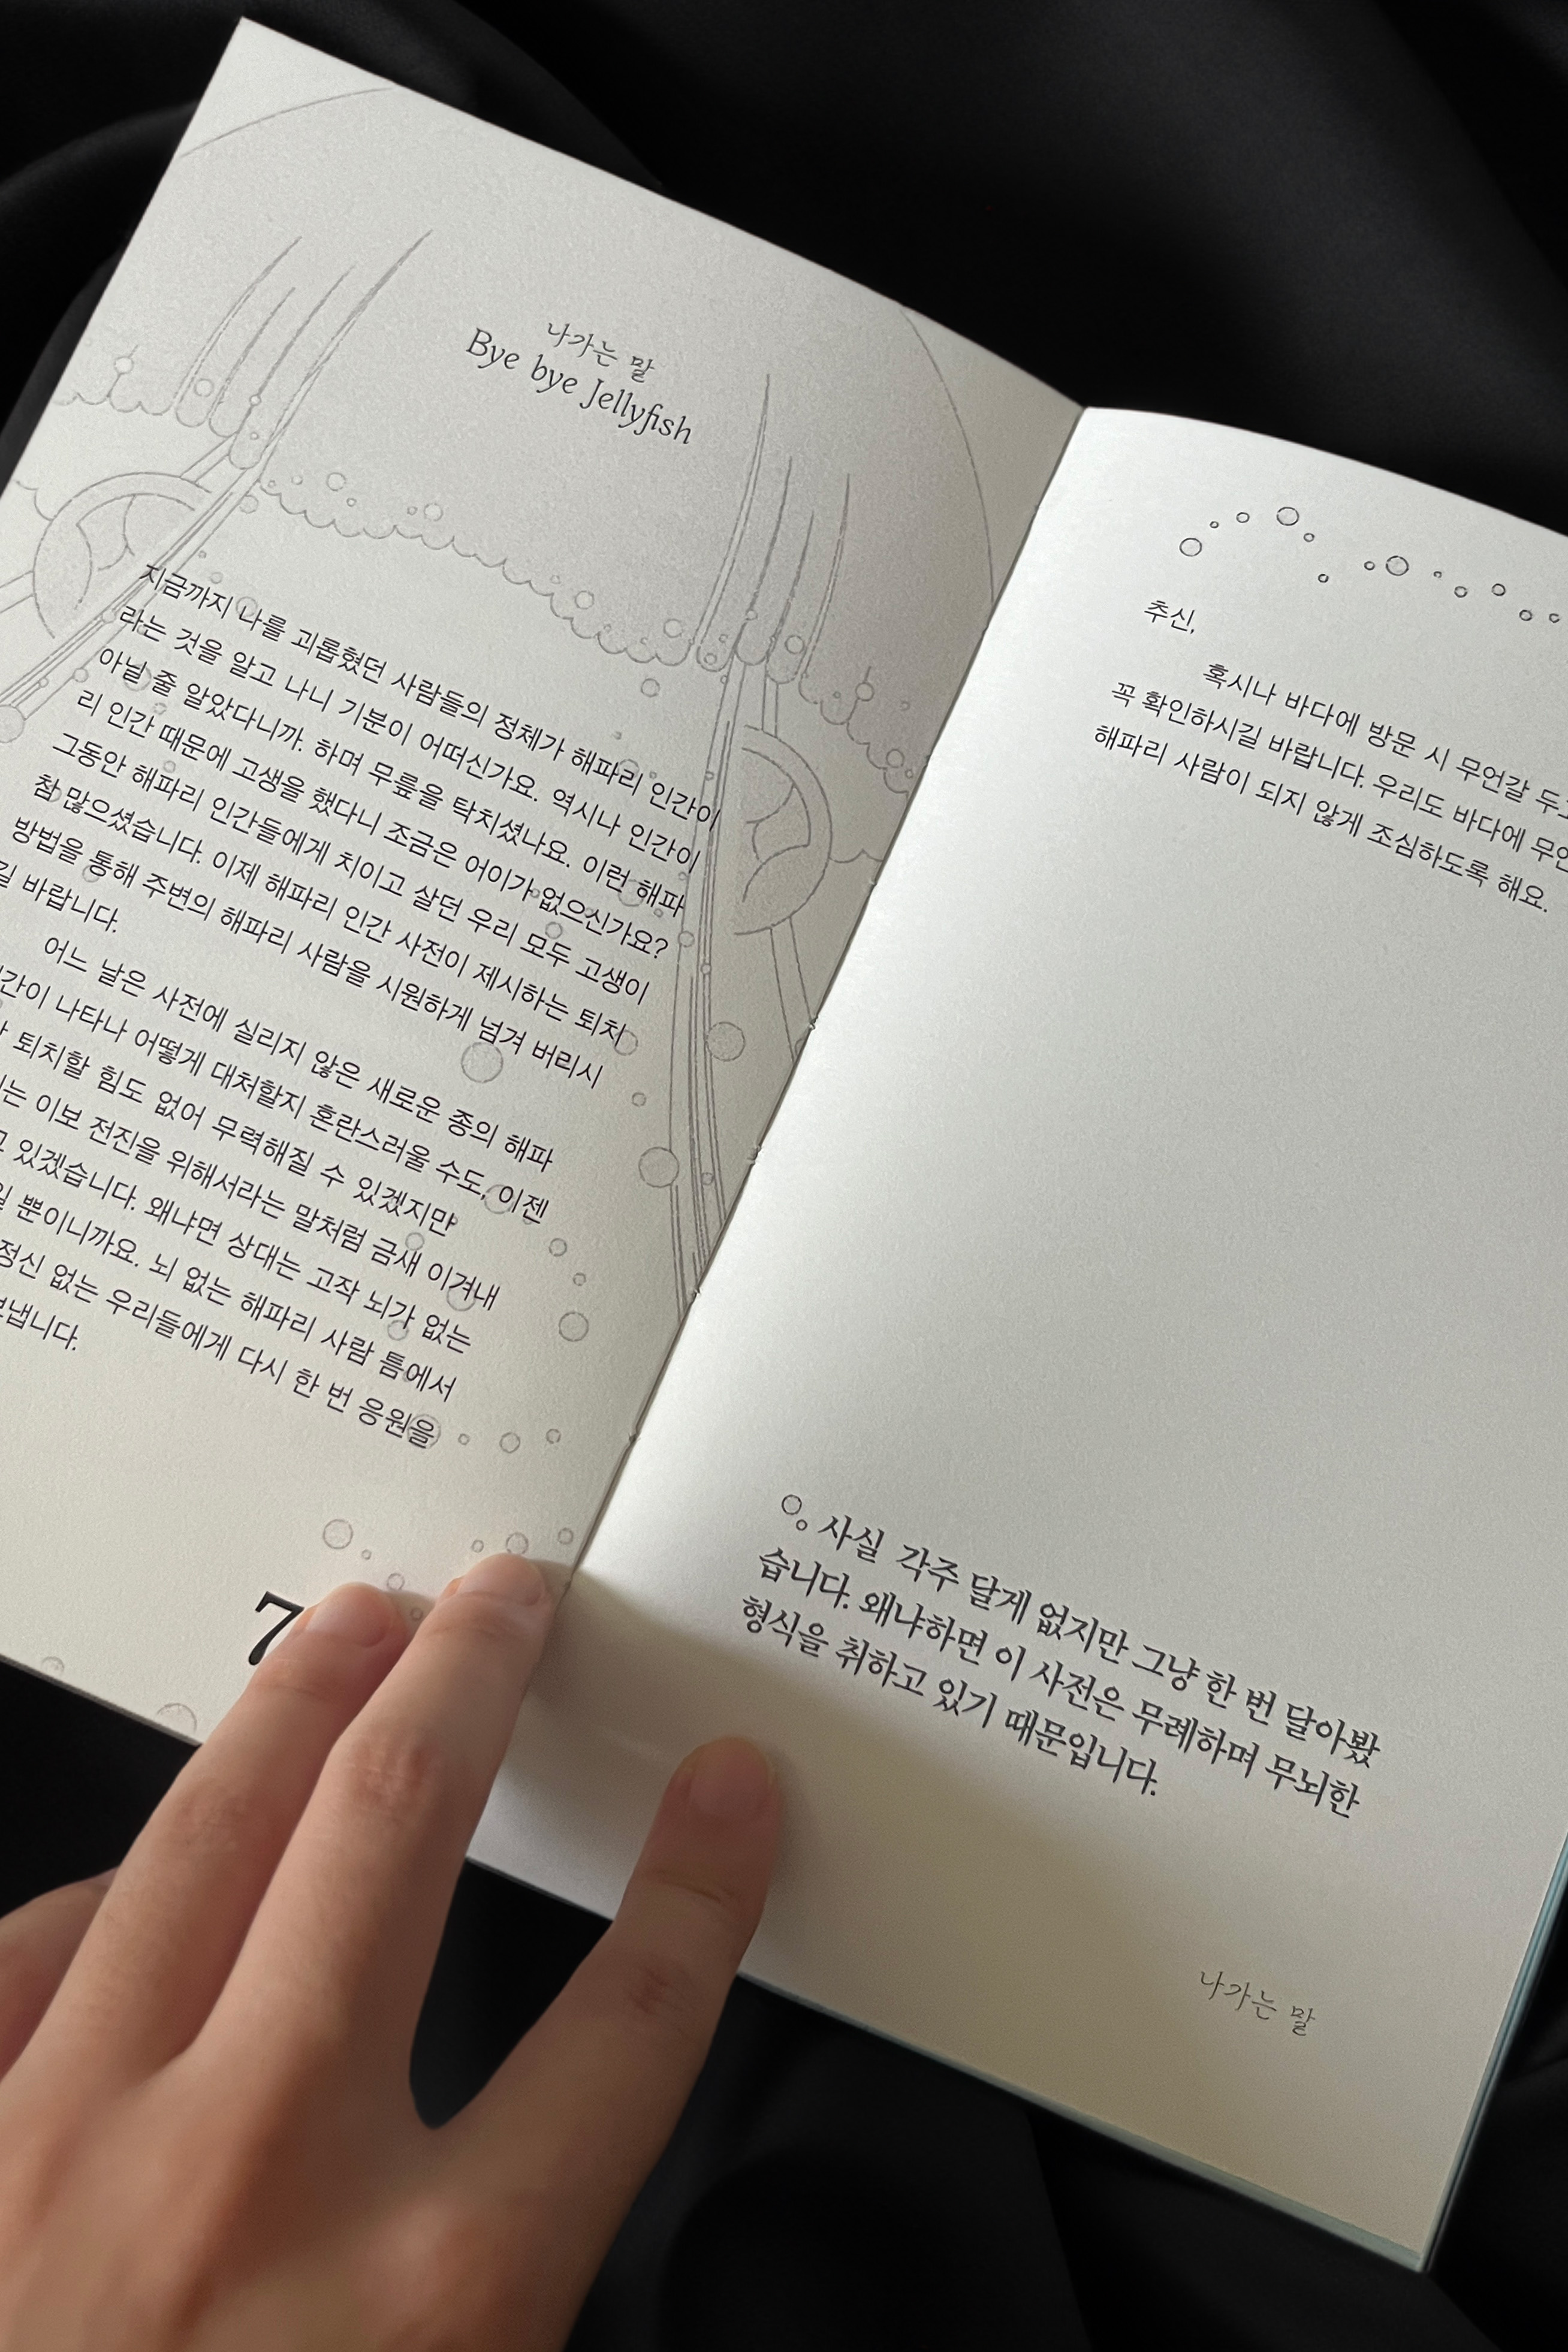 나가는 말
Bye bye Jellyfish
지금까지 나를 괴롭혔던 사람들의 정체가 해파리 인간이
라는 것을 알고 나니 기분이 어떠신가요. 역시나 인간이
아닐 줄 알았다니까. 하며 무릎을 탁치셨나요. 이런 해파
리 인간 때문에 고생을 했다니 조금은 어이가 없으신가요?
그동안 해파리 인간들에게 치이고 살던 우리 모두 고생이
참 많으셨습니다. 이제 해파리 인간 사전이 제시하는 퇴치
방법을 통해 주변의 해파리 사람을 시원하게 넘겨 버리시
길 바랍니다.
어느 날은 사전에 실리지 않은 새로운 종의 해파
나타나 어떻게 대처할지 혼란스러울 수도, 이젠
퇴치할 힘도 없어 무력해질 수 있겠지만
이보 전진을 위해서라는 말처럼 금새 이겨내
있겠습니다. 왜냐면 상대는 고작 뇌가 없는
뿐이니까요. 뇌 없는 해파리 사람 틈에서
정신 없는 우리들에게 다시 한 번 응원을
7
추신,
혹시나 바다에 방문 시 무언갈
꼭 확인하시길 바랍니다. 우리도 바다에
해파리 사람이 되지 않게 조심하도록 해요.
사실 각주 달게 없지만 그냥 한 번 달아봤
습니다. 왜냐하면 이 사전은 무례하며 무뇌한
형식을 취하고 있기 때문입니다.
나가는 말